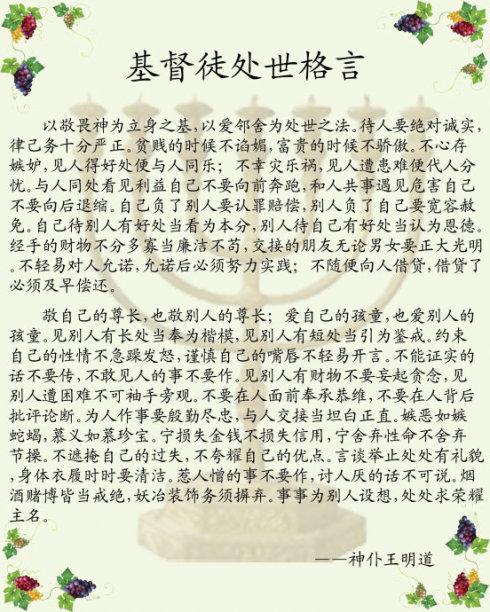 基督徒处世格言
以敬畏神为立身之基,以爱邻舍为处世之法。待人要绝对诚实,
律己务十分严正。贫贱的时候不谄媚,富贵的时候不骄傲。不心存
嫉妒,见人得好处便与人同乐; 不幸灾乐祸,见人遭患难便代人分
忧。与人同处看见利益自己不要向前奔跑,和人共事遇见危害自己
不要向后退缩。自己负了别人要认罪赔偿,别人负了自己要宽容赦
免。自己待别人有好处当看为本分,别人待自己有好处当认为恩德。
经手的财物不分多寡当廉洁不苟,交接的朋友无论男女要正大光明
。不轻易对人允诺,允诺后必须努力实践; 不随便向人借贷,借贷了
必须及早偿还。
敬自己的尊长,也敬别人的尊长; 爱自己的孩童,也爱别人的
孩童。见别人有长处当奉为楷模,见别人有短处当引为鉴戒。约束
自己的性情不急躁发怒,谨慎自己的嘴唇不轻易开言。不能证实的
话不要传,不敢见人的事不要作。见别人有财物不要妄起贪念,见
别人遭困难不可袖手旁观。不要在人面前奉承恭维,不要在人背后
批评论断。为人作事要殷勤尽忠,与人交接当坦白正直。嫉恶如嫉
蛇蝎,慕义如慕珍宝。宁损失金钱不损失信用,宁舍弃性命不舍弃
节操。不遮掩自己的过失,不夸耀自己的优点。言谈举止处处有礼貌
,身体衣履时时要清洁。惹人憎的事不要作,讨人厌的话不可说。烟
酒赌博皆当戒绝,妖冶装饰务须摒弃。事事为别人设想,处处求荣耀
主名。
——神仆王明道